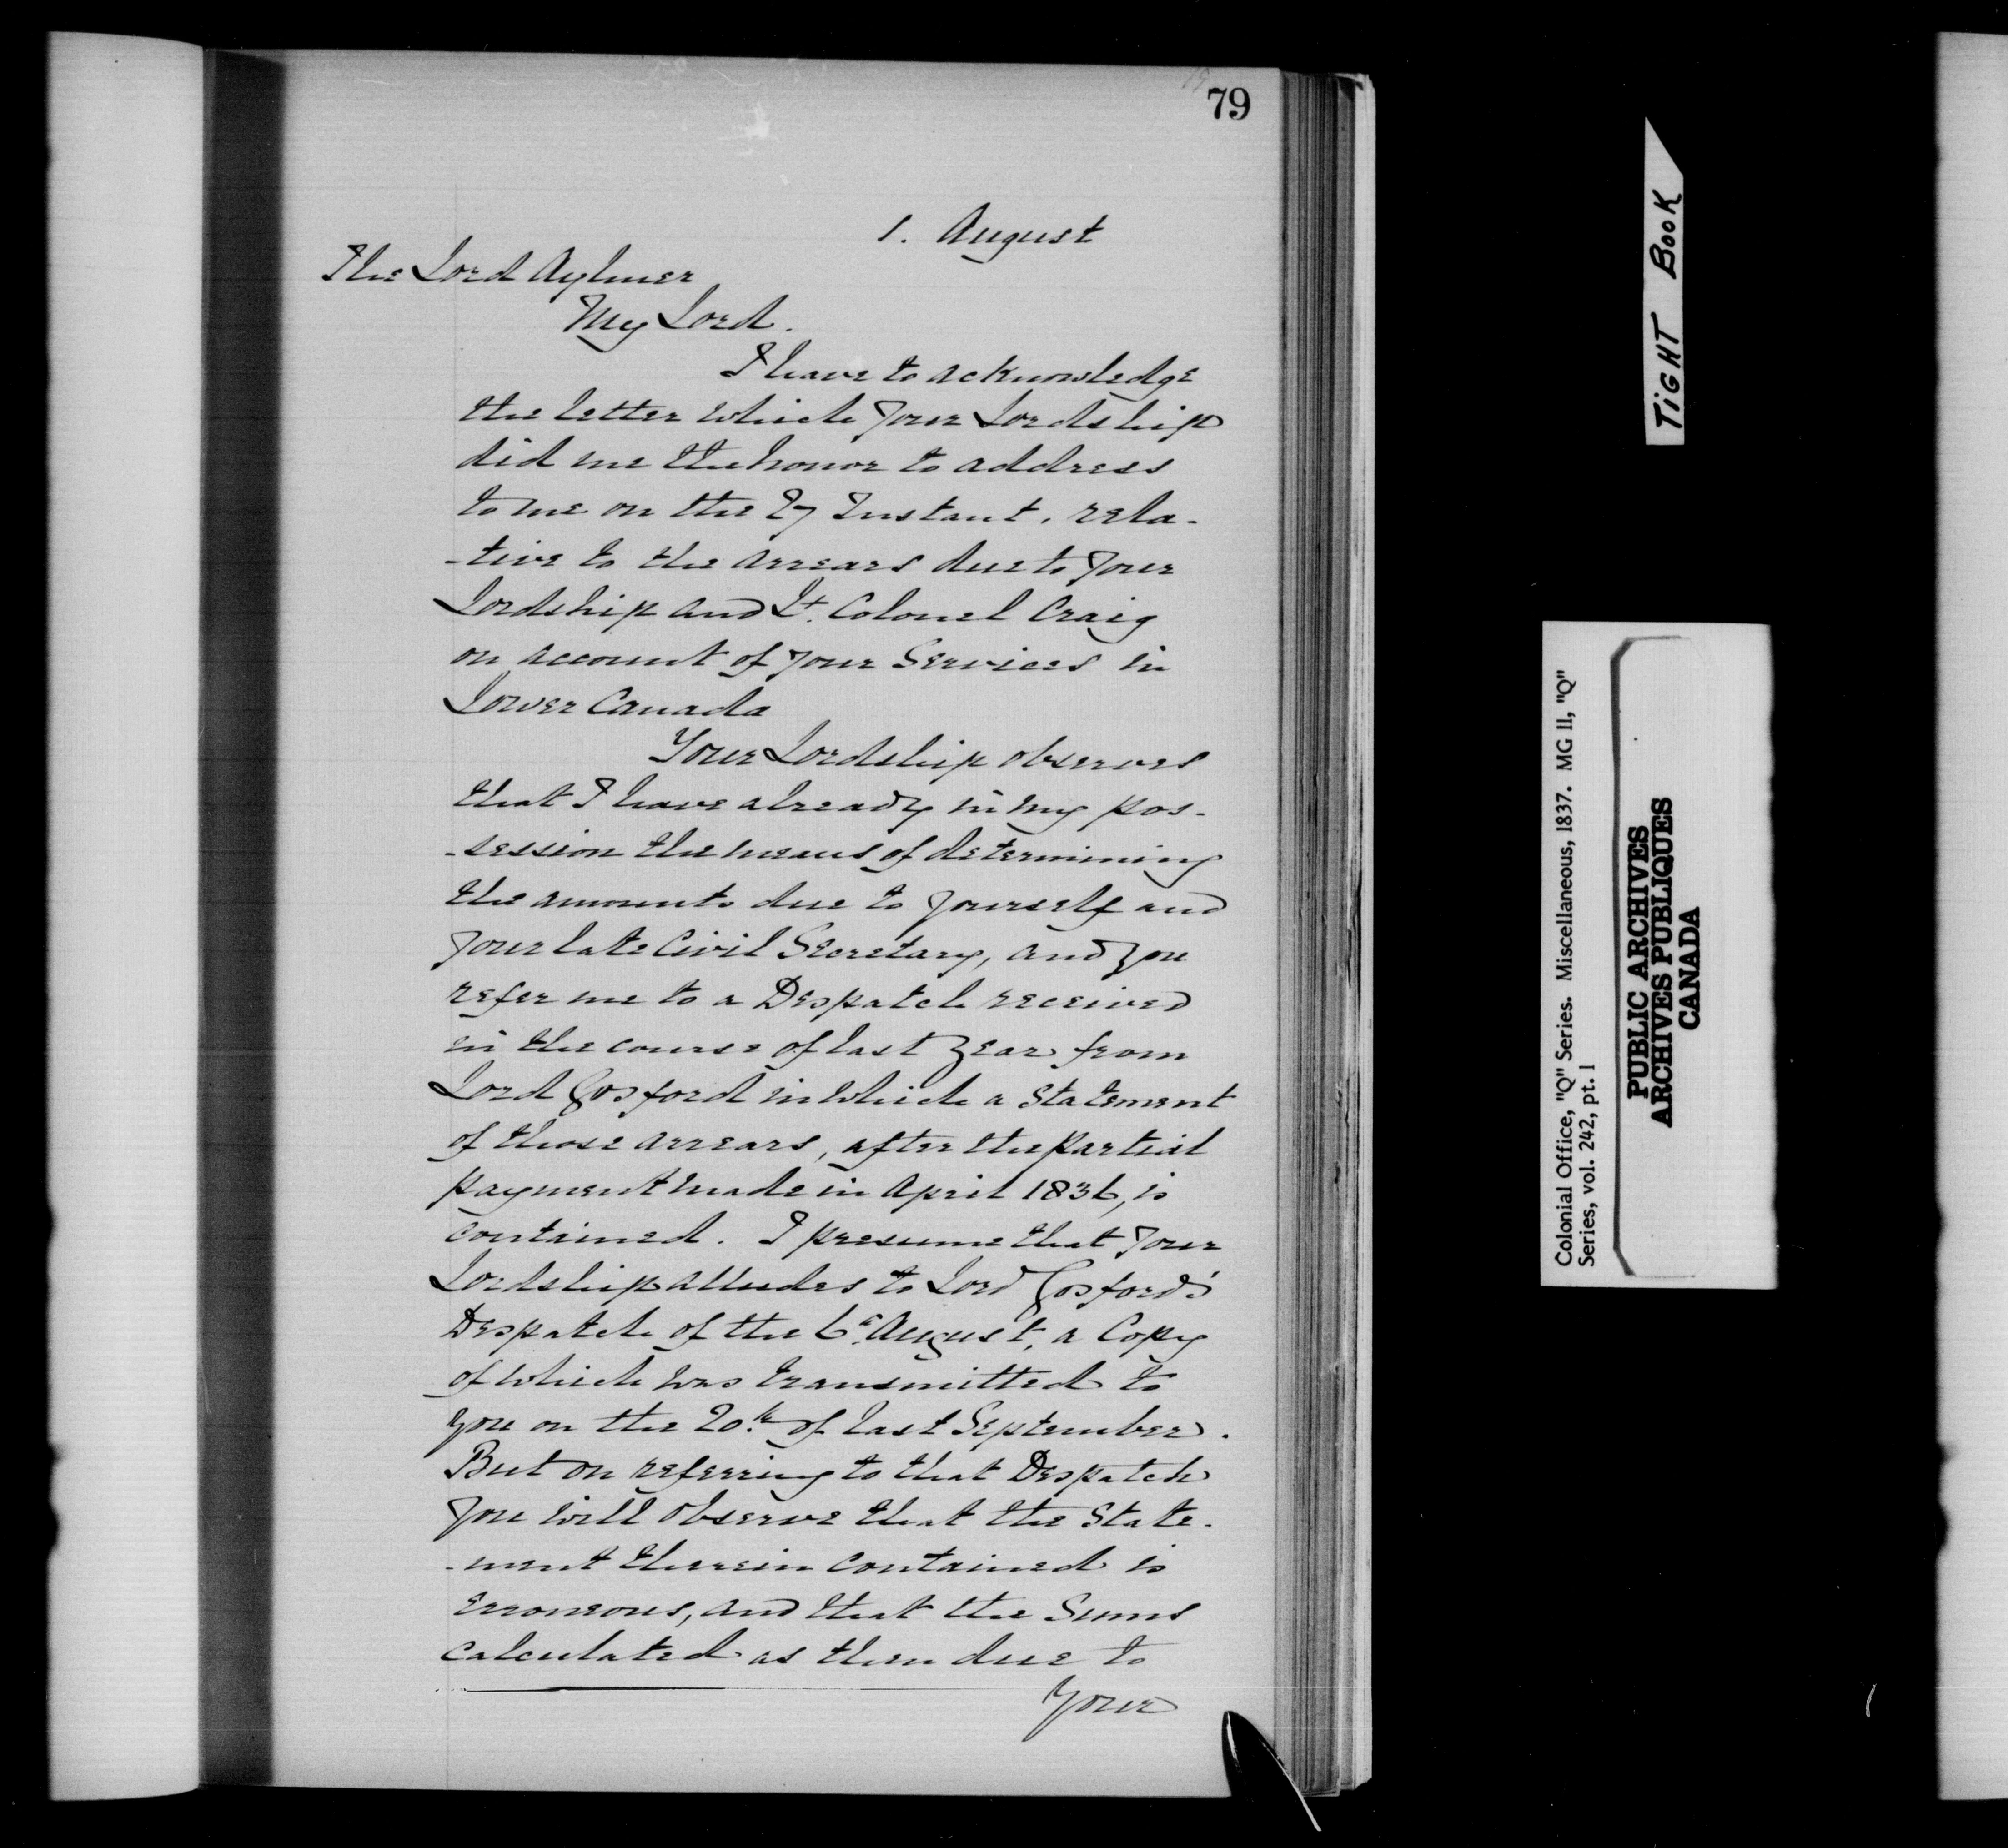 79
1. August
The Lord Aylmer
My Lord.
I have to acknowledge
the letter which your Lordship
did me the honor to address
to me on the 27 Instant, rela-
-tive to the arrears due to your
Lordship and Lt. Colonel Craig
on account of your Services in
Lower Canada
Your Lordship observes
that I have already in my pos-
-session the means of determining
the amounts due to yourself and
your late Civil Secretary, and you
refer me to a Despatch received
in the course of last year from
Lord Gosford in which a Statement
of those arrears, after the partial
payment made in April 1836, is
contained. I presume that your
Lordship alludes to Lord Gosford's
Despatch of the 6th August, a Copy
of which was transmitted to
you on the 20th of last September.
But on referring to that Despatch
you will observe that the State-
-ment therein contained is
erroneous, and that the Sums
calculated as then due to
Your
TIGHT BOOK
Colonial Office, "Q" Series. Miscellaneous, 1837. MG 11, "Q"
Series, vol. 242, pt. 1
PUBLIC ARCHIVES
ARCHIVES PUBLIQUES
CANADA